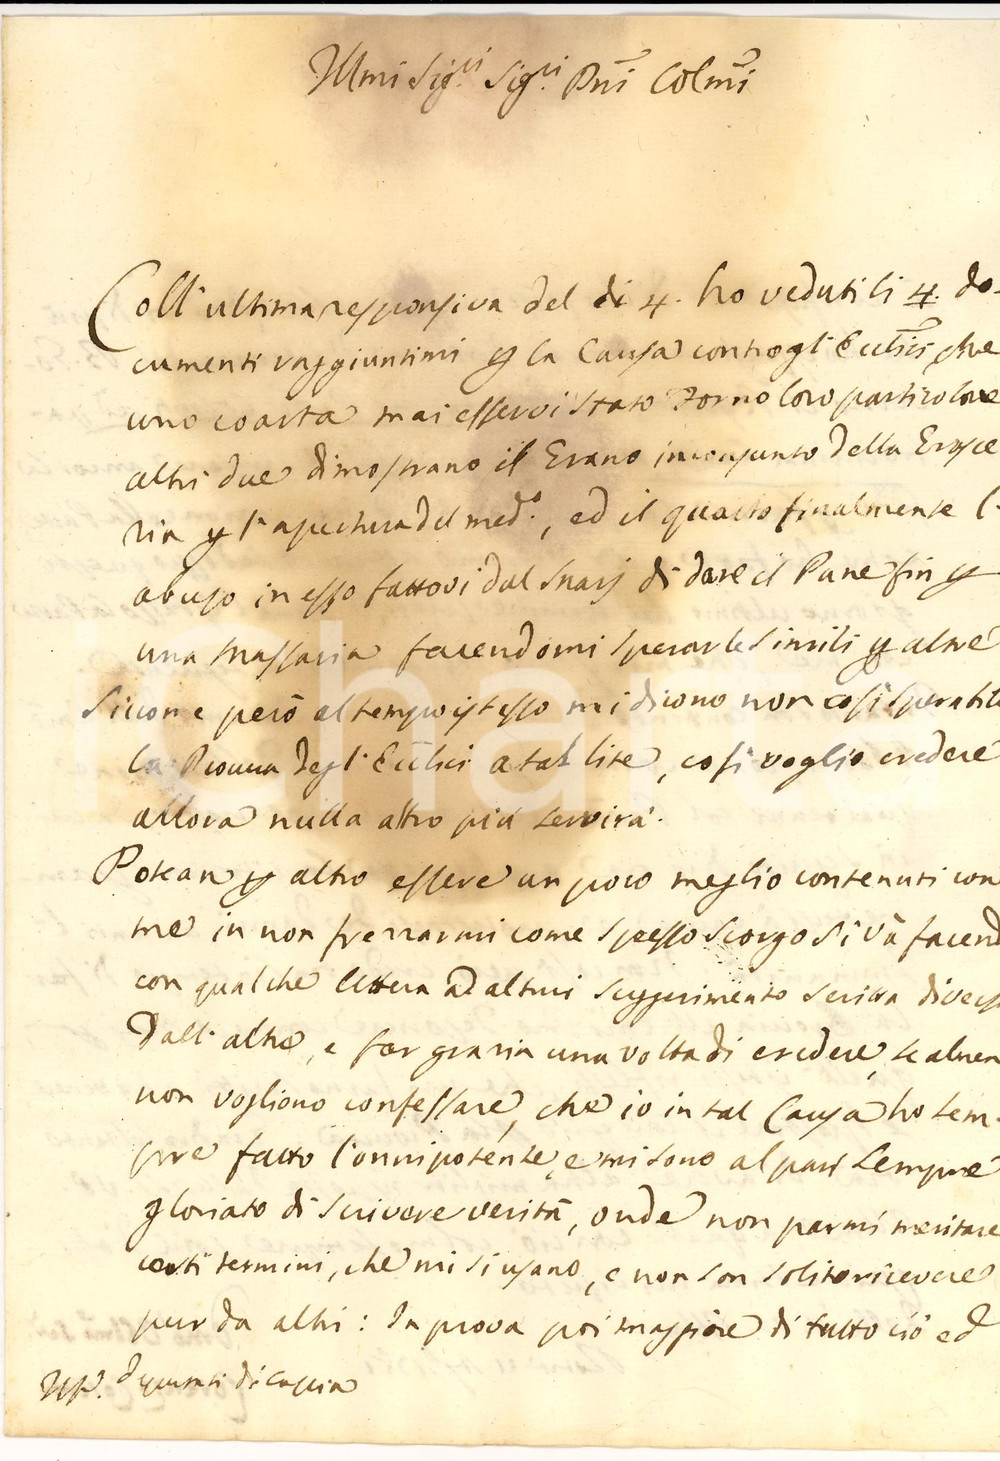 Illmi Sig.ri Sig.ri Pni Colmi
Coll' ultima responsiva del di 4. ho veduti li 4. do-
cumenti raggiuntimi p la Causa contro gl' Ecclici, che
uno coarta mai esservi stato Forno loro particolare
altri due dimostrano il Grano inconsunto della
ria p l' apertura del med.o, ed il quarto finalmente l'
abuso in esso fattovi dal di dare il Pane fin p
una Massaria facendomi sperarle simili p altre
Siccome però al tempo istesso mi dicono non così sperabile
la degl' Ecclici a tal lite, così voglio credere
allora nulla altro più servirà.
Potean p altro essere un poco meglio contenuti con
me in non come spesso scorgo si và facend
con qualche lettera ad altrui suggerimento scritta divers
dall' altre, e far grazia una volta di credere, se almen
non vogliono confessare, che io in tal Causa ho sem-
pre fatto l'onnipotente, e mi sono al pari sempre
gloriato di scrivere verità, onde non parmi meritare
certi termini, che mi si usano, e non son solito ricevere
pur da altri: In prova poi maggiore di tutto ciò ed
Deputati di
Char